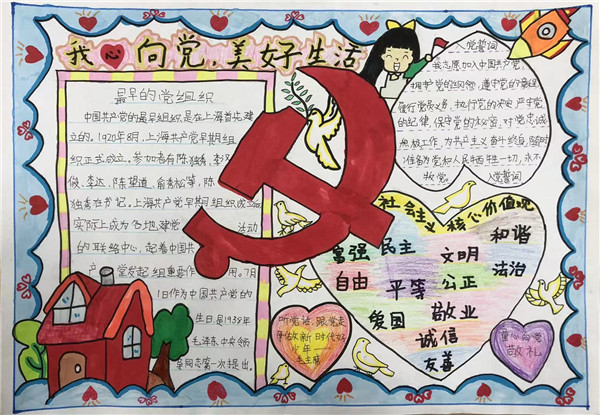 我心向党,美好生活
最早的党组织
中国共产党的最早组织是在上海首先
建立的。1920年8月,上海共产党早期组
织正式成立。参加者有陈独秀、李汉
俊、李达、陈望道、俞秀松等,陈
独秀任书记。上海共产党早期组织成立后
实际上成为各地建党活动
的联络中心,起着中国共
产党发起组重要作用。7月
1日作为中国共产党的
生日是1938年
毛泽东
同志第一次提出。
入党誓词
我志愿加入中国共产党,
拥护党的纲领,遵守党的章程
履行党员义务,执行党的决定,严守党
的纪律,保守党的秘密,对党忠诚
积极工作,为共产主义奋斗终身,随时
准备为党和人民牺牲一切,永不
叛党。 入党誓词
社会主义核心价值观
富强 民主 文明 和谐
自由 平等 公正 法治
爱国 敬业
诚信
友善
听党话,跟党走
争做新时代好
少年
童心向党
敬礼